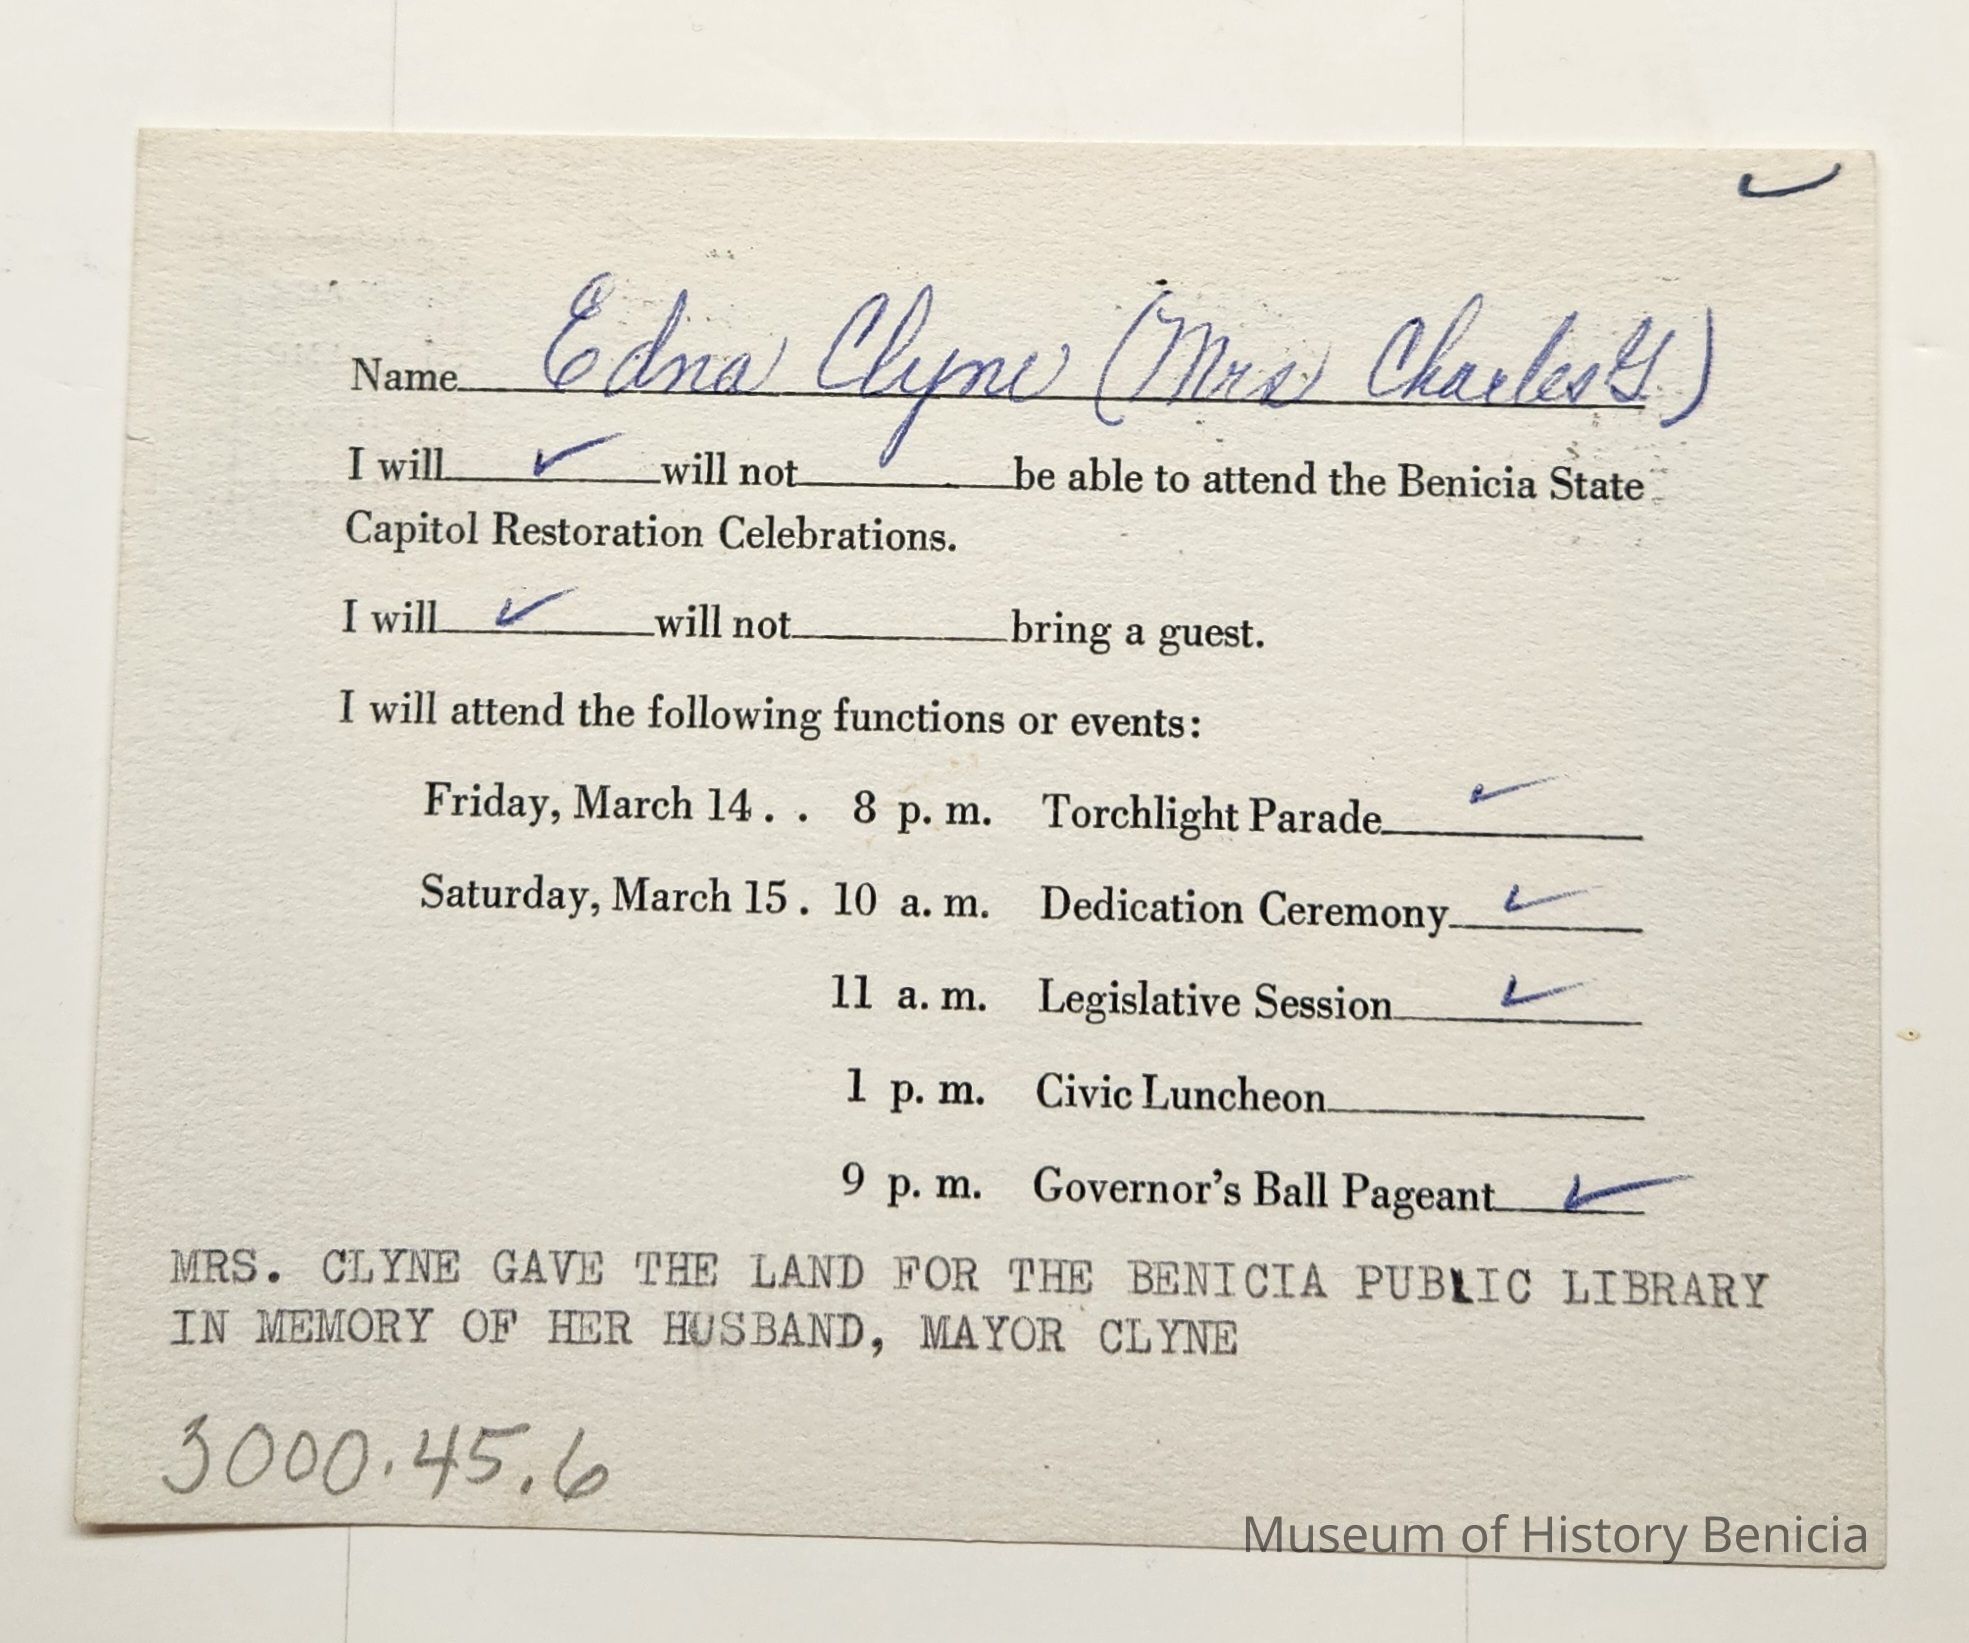 ✓
Name Edna Clyne (Mrs Charles G)
I will ✓ will not be able to attend the Benicia State
Capitol Restoration Celebrations.
I will ✓ will not bring a guest.
I will attend the following functions or events:
Friday, March 14 . . 8 p. m. Torchlight Parade ✓
Saturday, March 15 . 10 a. m. Dedication Ceremony ✓
11 a. m. Legislative Session ✓
1 p. m. Civic Luncheon
9 p. m. Governor's Ball Pageant ✓
MRS. CLYNE GAVE THE LAND FOR THE BENICIA PUBLIC LIBRARY
IN MEMORY OF HER HUSBAND, MAYOR CLYNE
3000.45.6
Museum of History Benicia